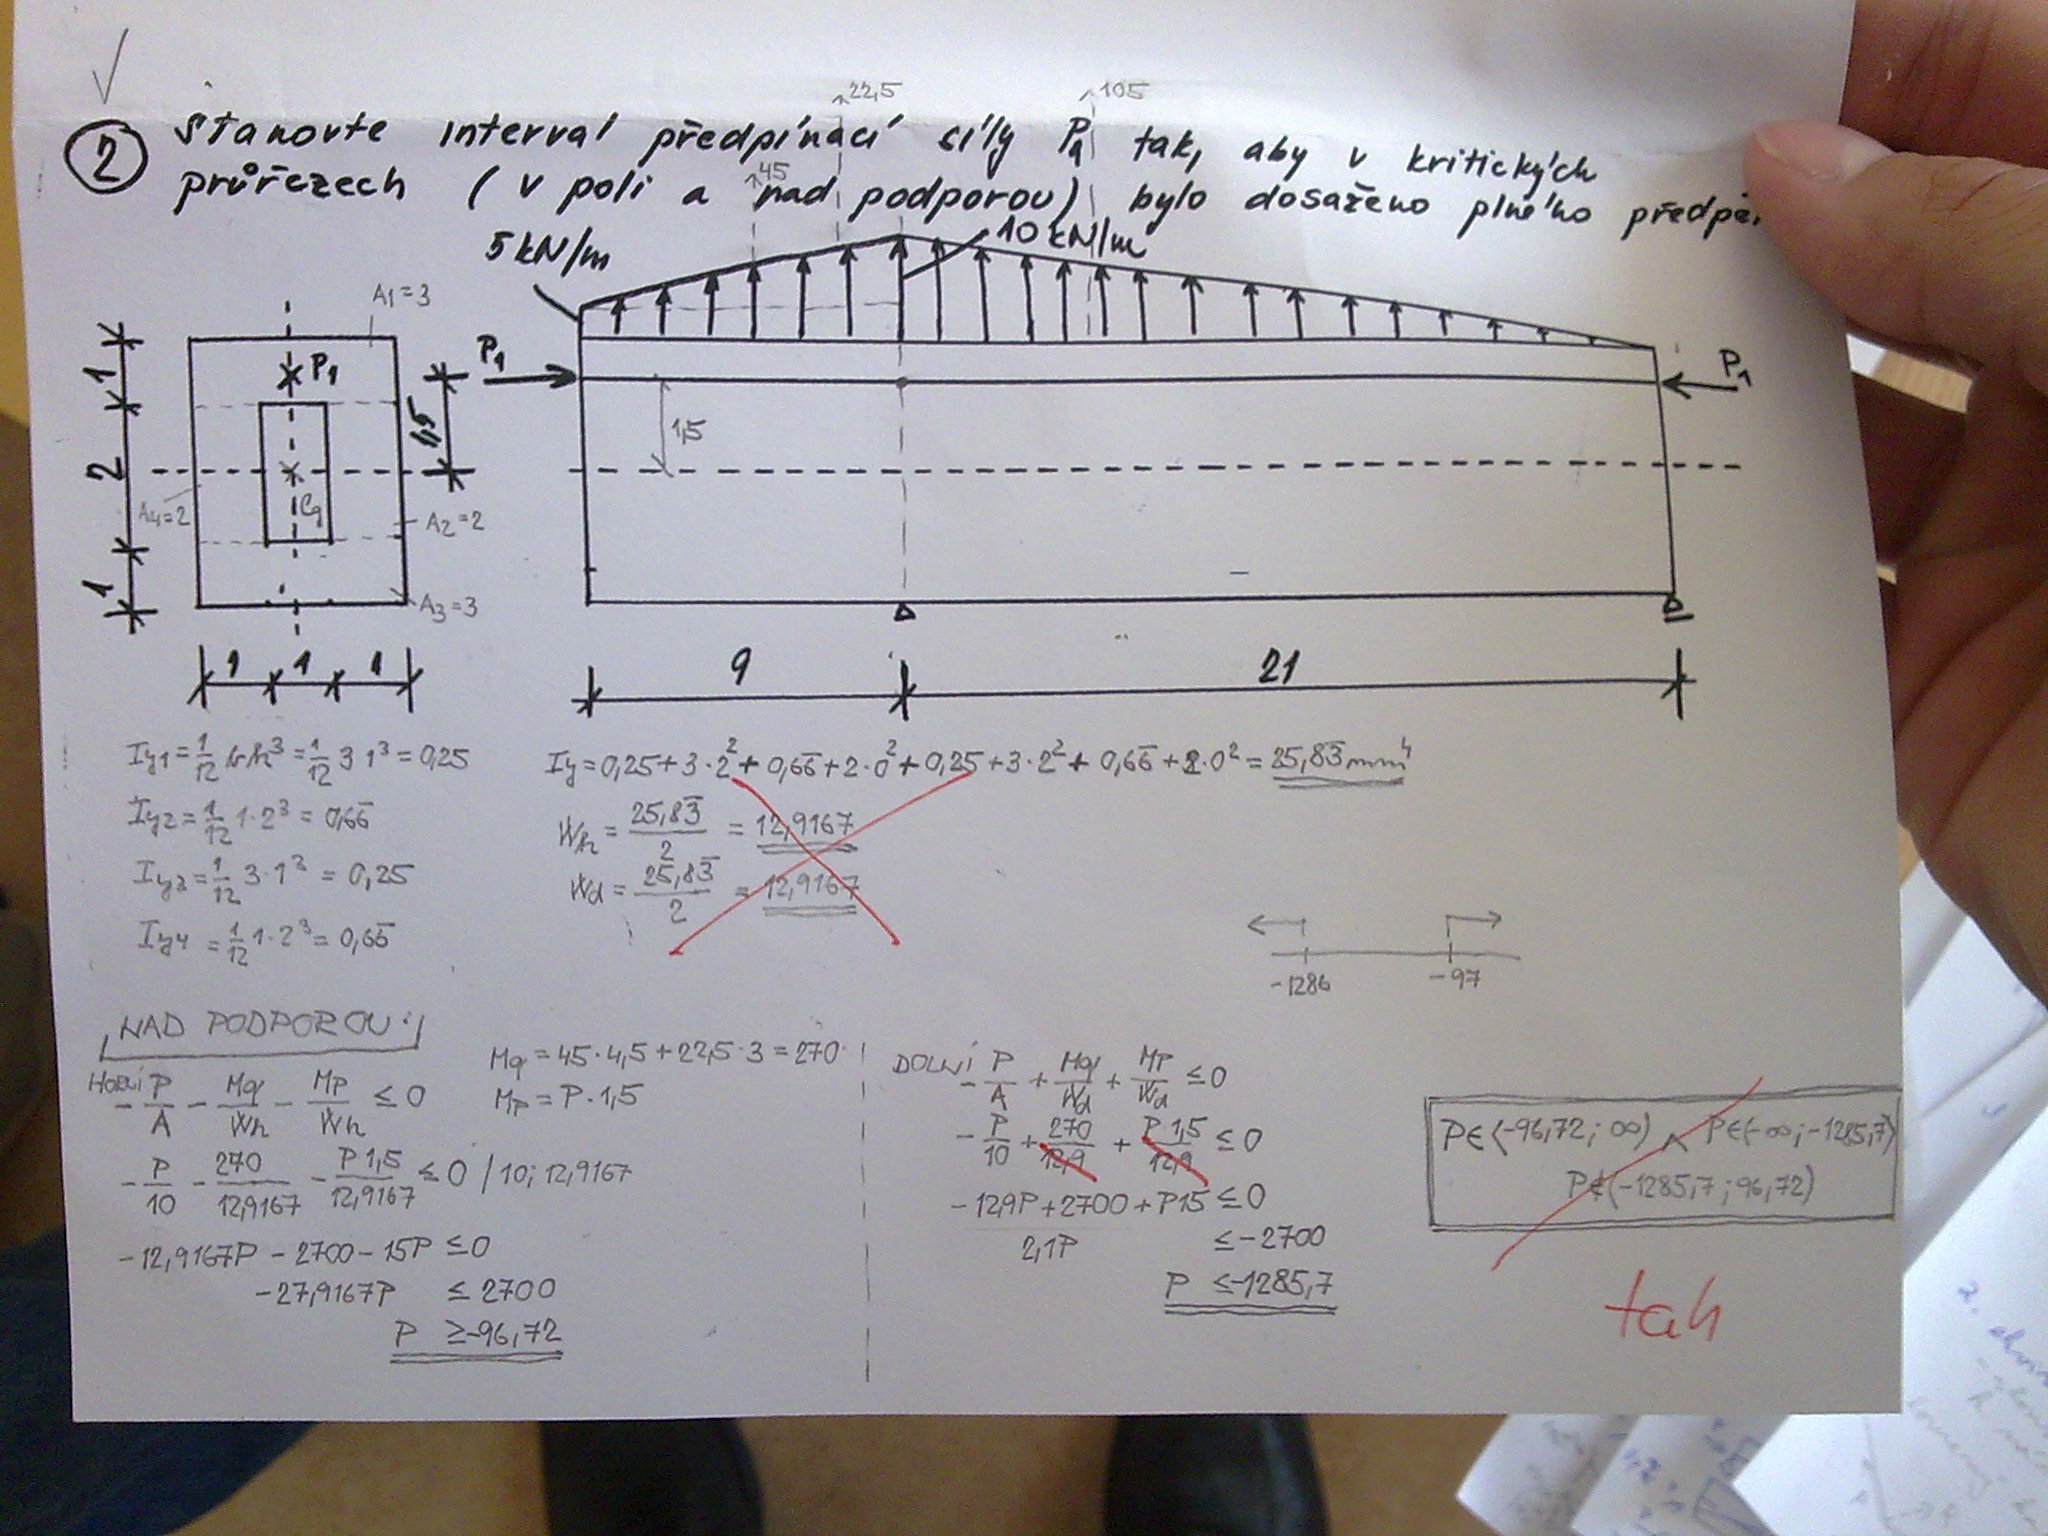 22,5
105
② Stanovte interval předpínací síly P₁ tak, aby v kritických
průřezech ( v poli a nad podporou) bylo dosaženo plného předpě
45
5 kN/m
10 kN/m
A₁=3
P₁
P₁
P₁
1
2
1
1,5
1,5
Cg
A₄=2
A₂=2
A₃=3
1 1 1
9
21
Iy1 = 1/12 bh³ = 1/12 3 1³ = 0,25
Iy2 = 1/12 1·2³ = 0,66̅
Iy3 = 1/12 3·1³ = 0,25
Iy4 = 1/12 1·2³ = 0,66̅
Iy = 0,25 + 3·2² + 0,66̅ + 2·0² + 0,25 + 3·2² + 0,66̅ + 2·0² = 25,83̅ mm⁴
Wh = 25,83̅/2 = 12,9167
Wd = 25,83̅/2 = 12,9167
-1286
-97
NAD PODPOROU:
HORNÍ
-P/A - Mq/Wh - Mp/Wh ≤ 0
-P/10 - 270/12,9167 - P 1,5/12,9167 ≤ 0 / 10; 12,9167
-12,9167P - 2700 - 15P ≤ 0
-27,9167P ≤ 2700
P ≥ -96,72
Mq = 45·4,5 + 22,5·3 = 270
Mp = P·1,5
DOLNÍ
-P/A + Mq/Wd + Mp/Wd ≤ 0
-P/10 + 270/12,9 + P·1,5/12,9 ≤ 0
-12,9P + 2700 + P15 ≤ 0
2,1P ≤ -2700
P ≤ -1285,7
P∈⟨-96,72; ∞) ∧ P∈(-∞; -1285,7⟩
P∉(-1285,7; 96,72)
tah